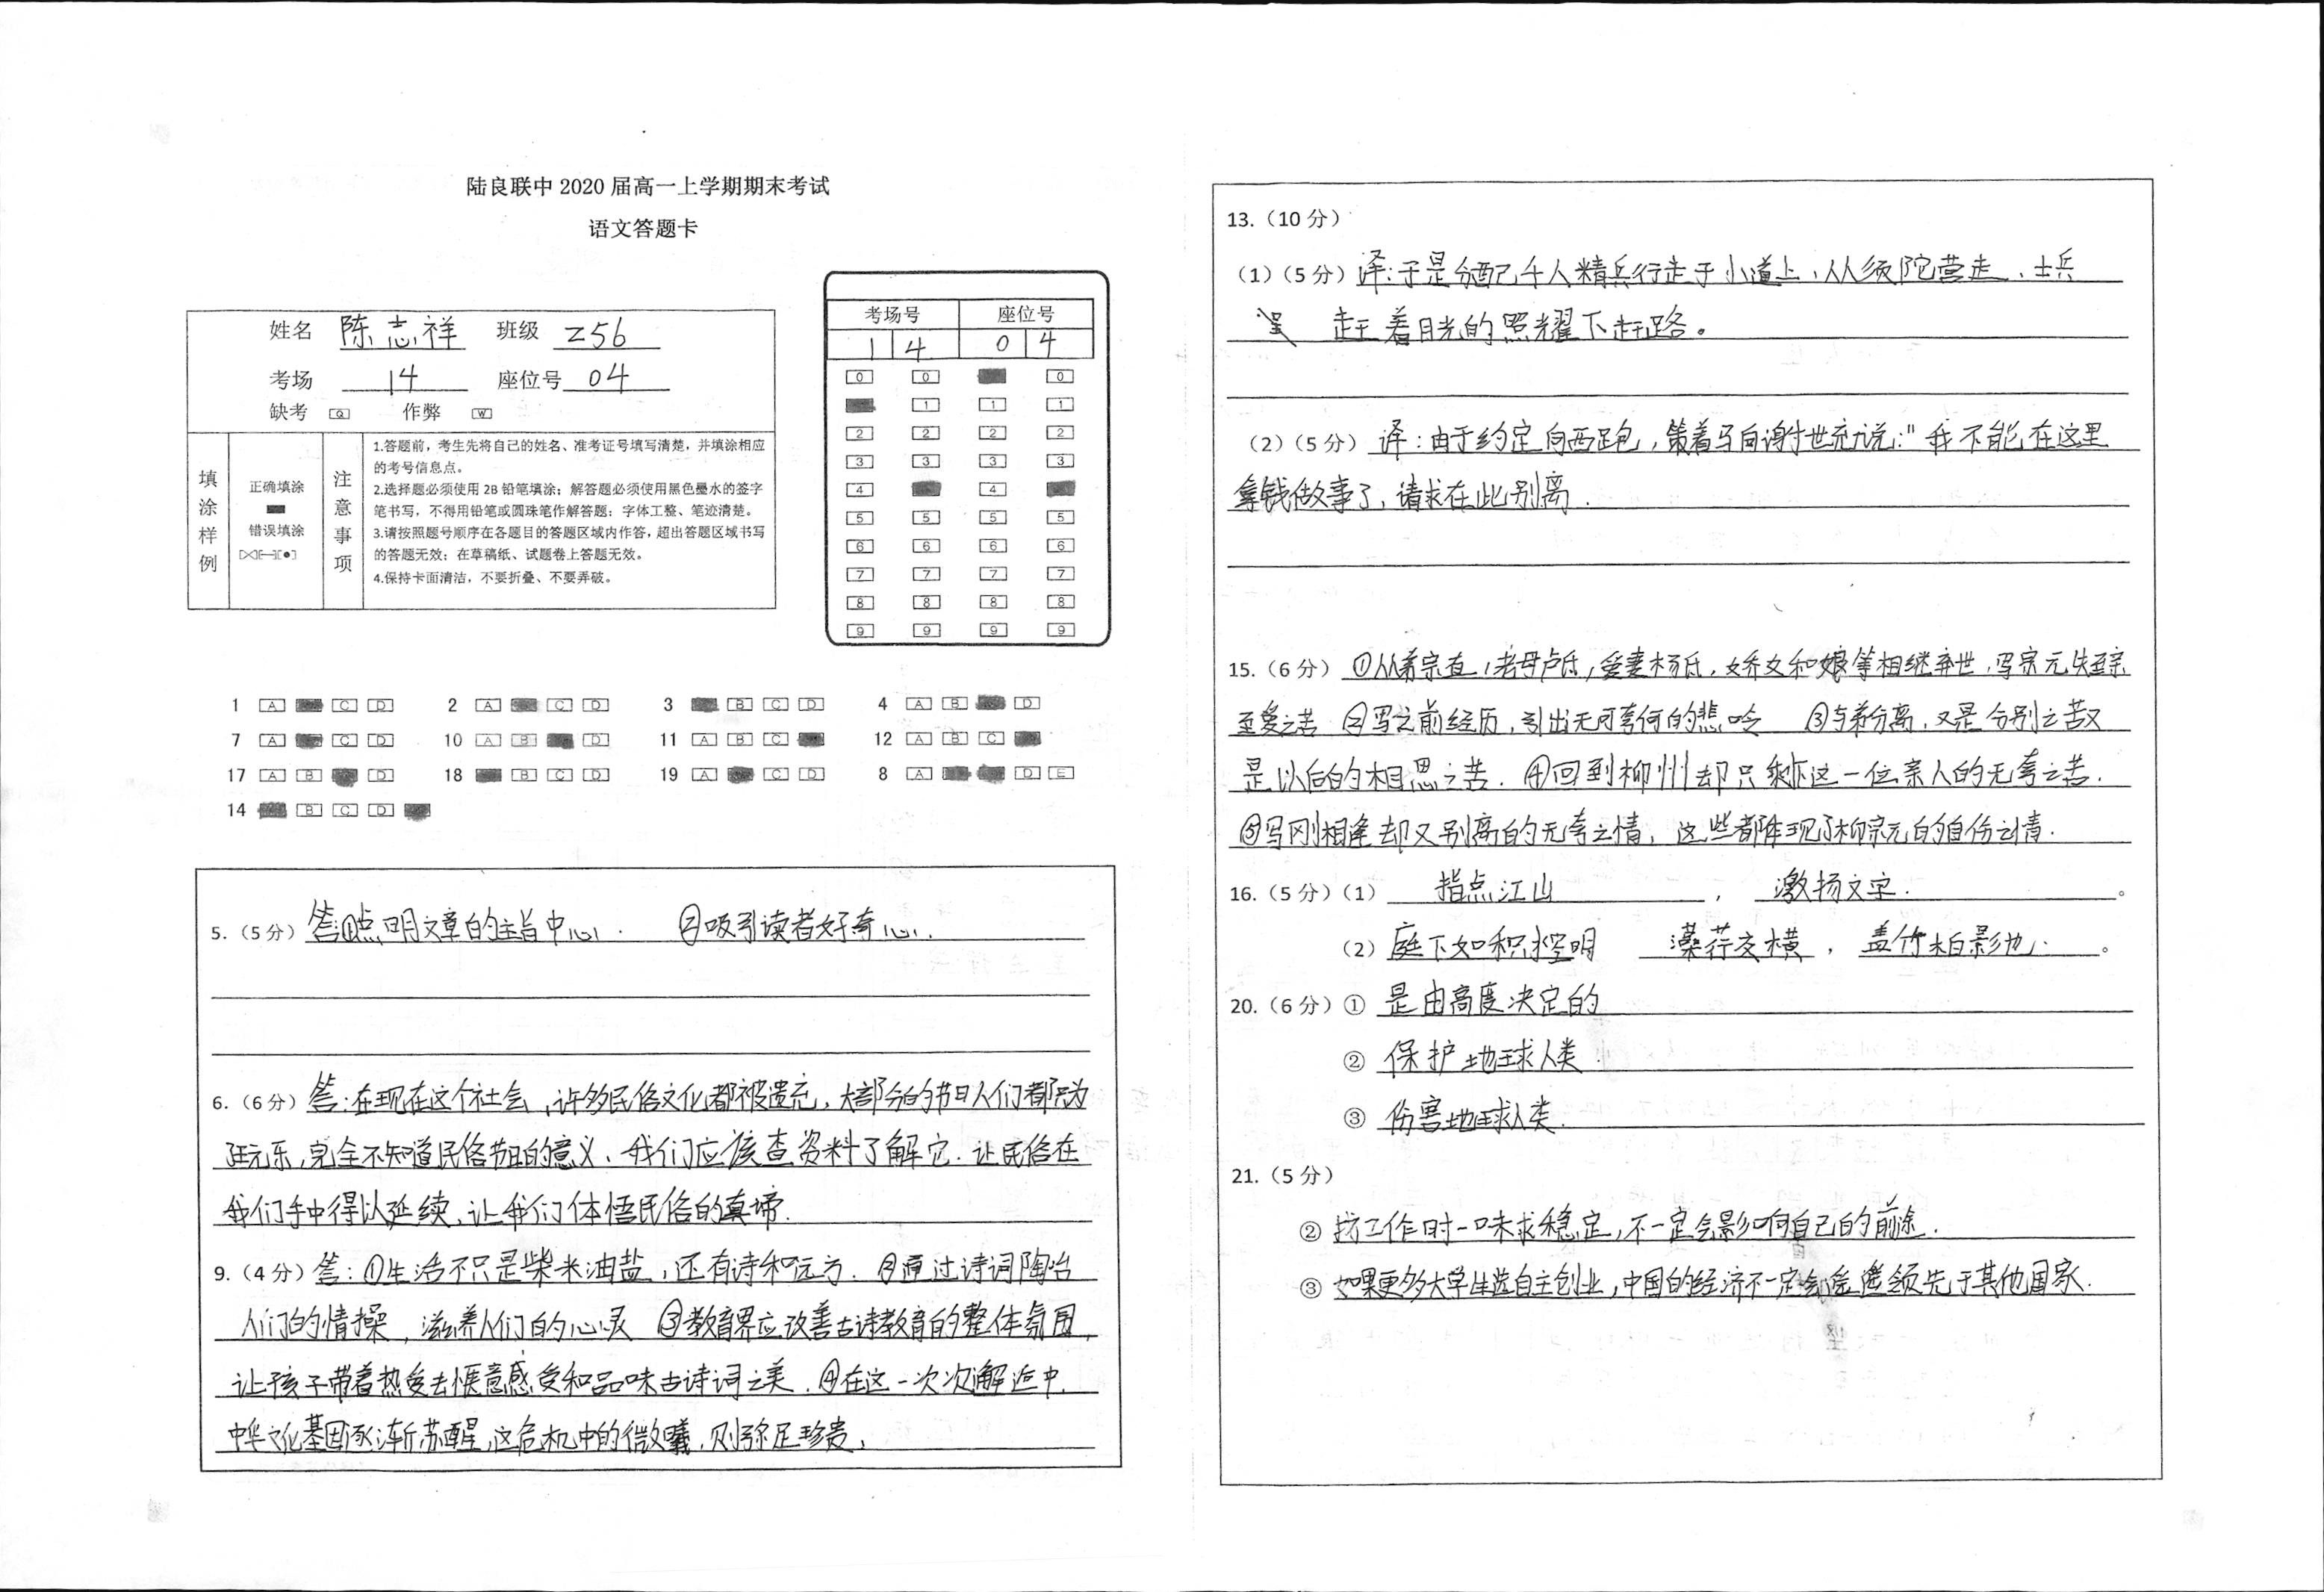 陆良联中 2020 届高一上学期期末考试
语文答题卡
姓名 陈志祥 班级 256
考场 14 座位号 04
缺考 [Q] 作弊 [W]
填涂样例
正确填涂
错误填涂
注意事项
1.答题前，考生先将自己的姓名、准考证号填写清楚，并填涂相应
的考号信息点。
2.选择题必须使用 2B 铅笔填涂；解答题必须使用黑色墨水的签字
笔书写，不得用铅笔或圆珠笔作解答题；字体工整、笔迹清楚。
3.请按照题号顺序在各题目的答题区域内作答，超出答题区域书写
的答题无效；在草稿纸、试题卷上答题无效。
4.保持卡面清洁，不要折叠、不要弄破。
考场号 座位号
1 4 0 4
0 0 0
1 1 1
2 2 2 2
3 3 3 3
4 4
5 5 5 5
6 6 6 6
7 7 7 7
8 8 8 8
9 9 9 9
1 A C D 2 A C D 3 B C D 4 A B D
7 A C D 10 A B D 11 A B C 12 A B C
17 A B D 18 B C D 19 A C D 8 A D E
14 B C D
5.（5 分） 答①点明文章的主旨中心. ②吸引读者好奇心.
6.（6 分） 答:在现在这个社会,许多民俗文化都被遗忘,大部分的节日人们都只为
玩乐,完全不知道民俗节日的意义、我们应该查资料了解它.让民俗在
我们手中得以延续、让我们体悟民俗的真谛.
9.（4 分） 答: ①生活不只是柴米油盐,还有诗和远方. ②通过诗词陶冶
人们的情操,滋养人们的心灵 ③教育界应改善古诗教育的整体氛围,
让孩子带着热爱去惬意感受和品味古诗词之美. ④在这一次次邂逅中,
中华文化基因逐渐苏醒,这危机中的微曦,则弥足珍贵,
13.（10 分）
（1）（5 分） 译:于是分配千人精兵行走于小道上,从须陀营走、士兵
赶着日光的照耀下赶路。
（2）（5 分） 译:由于约定向西跑,策着马向谢世充说:"我不能在这里
拿钱做事了,请求在此别离.
15.（6 分） ①从弟宗直,老母卢氏,爱妻杨氏,娇女和娘等相继弃世,写宗元失至亲
至爱之苦 ②写之前经历,引出无可奈何的悲吟 ③与弟分离,又是分别之苦又
是以后的相思之苦. ④回到柳州却只剩下这一位亲人的无奈之苦.
⑤写刚相逢却又别离的无奈之情, 这些都体现了柳宗元的自伤之情.
16.（5 分）（1） 指点江山 ， 激扬文字. 。
（2）庭下如积水空明 藻荇交横 ， 盖竹柏影也. 。
20.（6 分）① 是由高度决定的
② 保护地球人类.
③ 伤害地球人类.
21.（5 分）
② 找工作时一味求稳定,不一定会影响自己的前途.
③ 如果更多大学生选自主创业,中国的经济不一定会遥遥领先于其他国家.